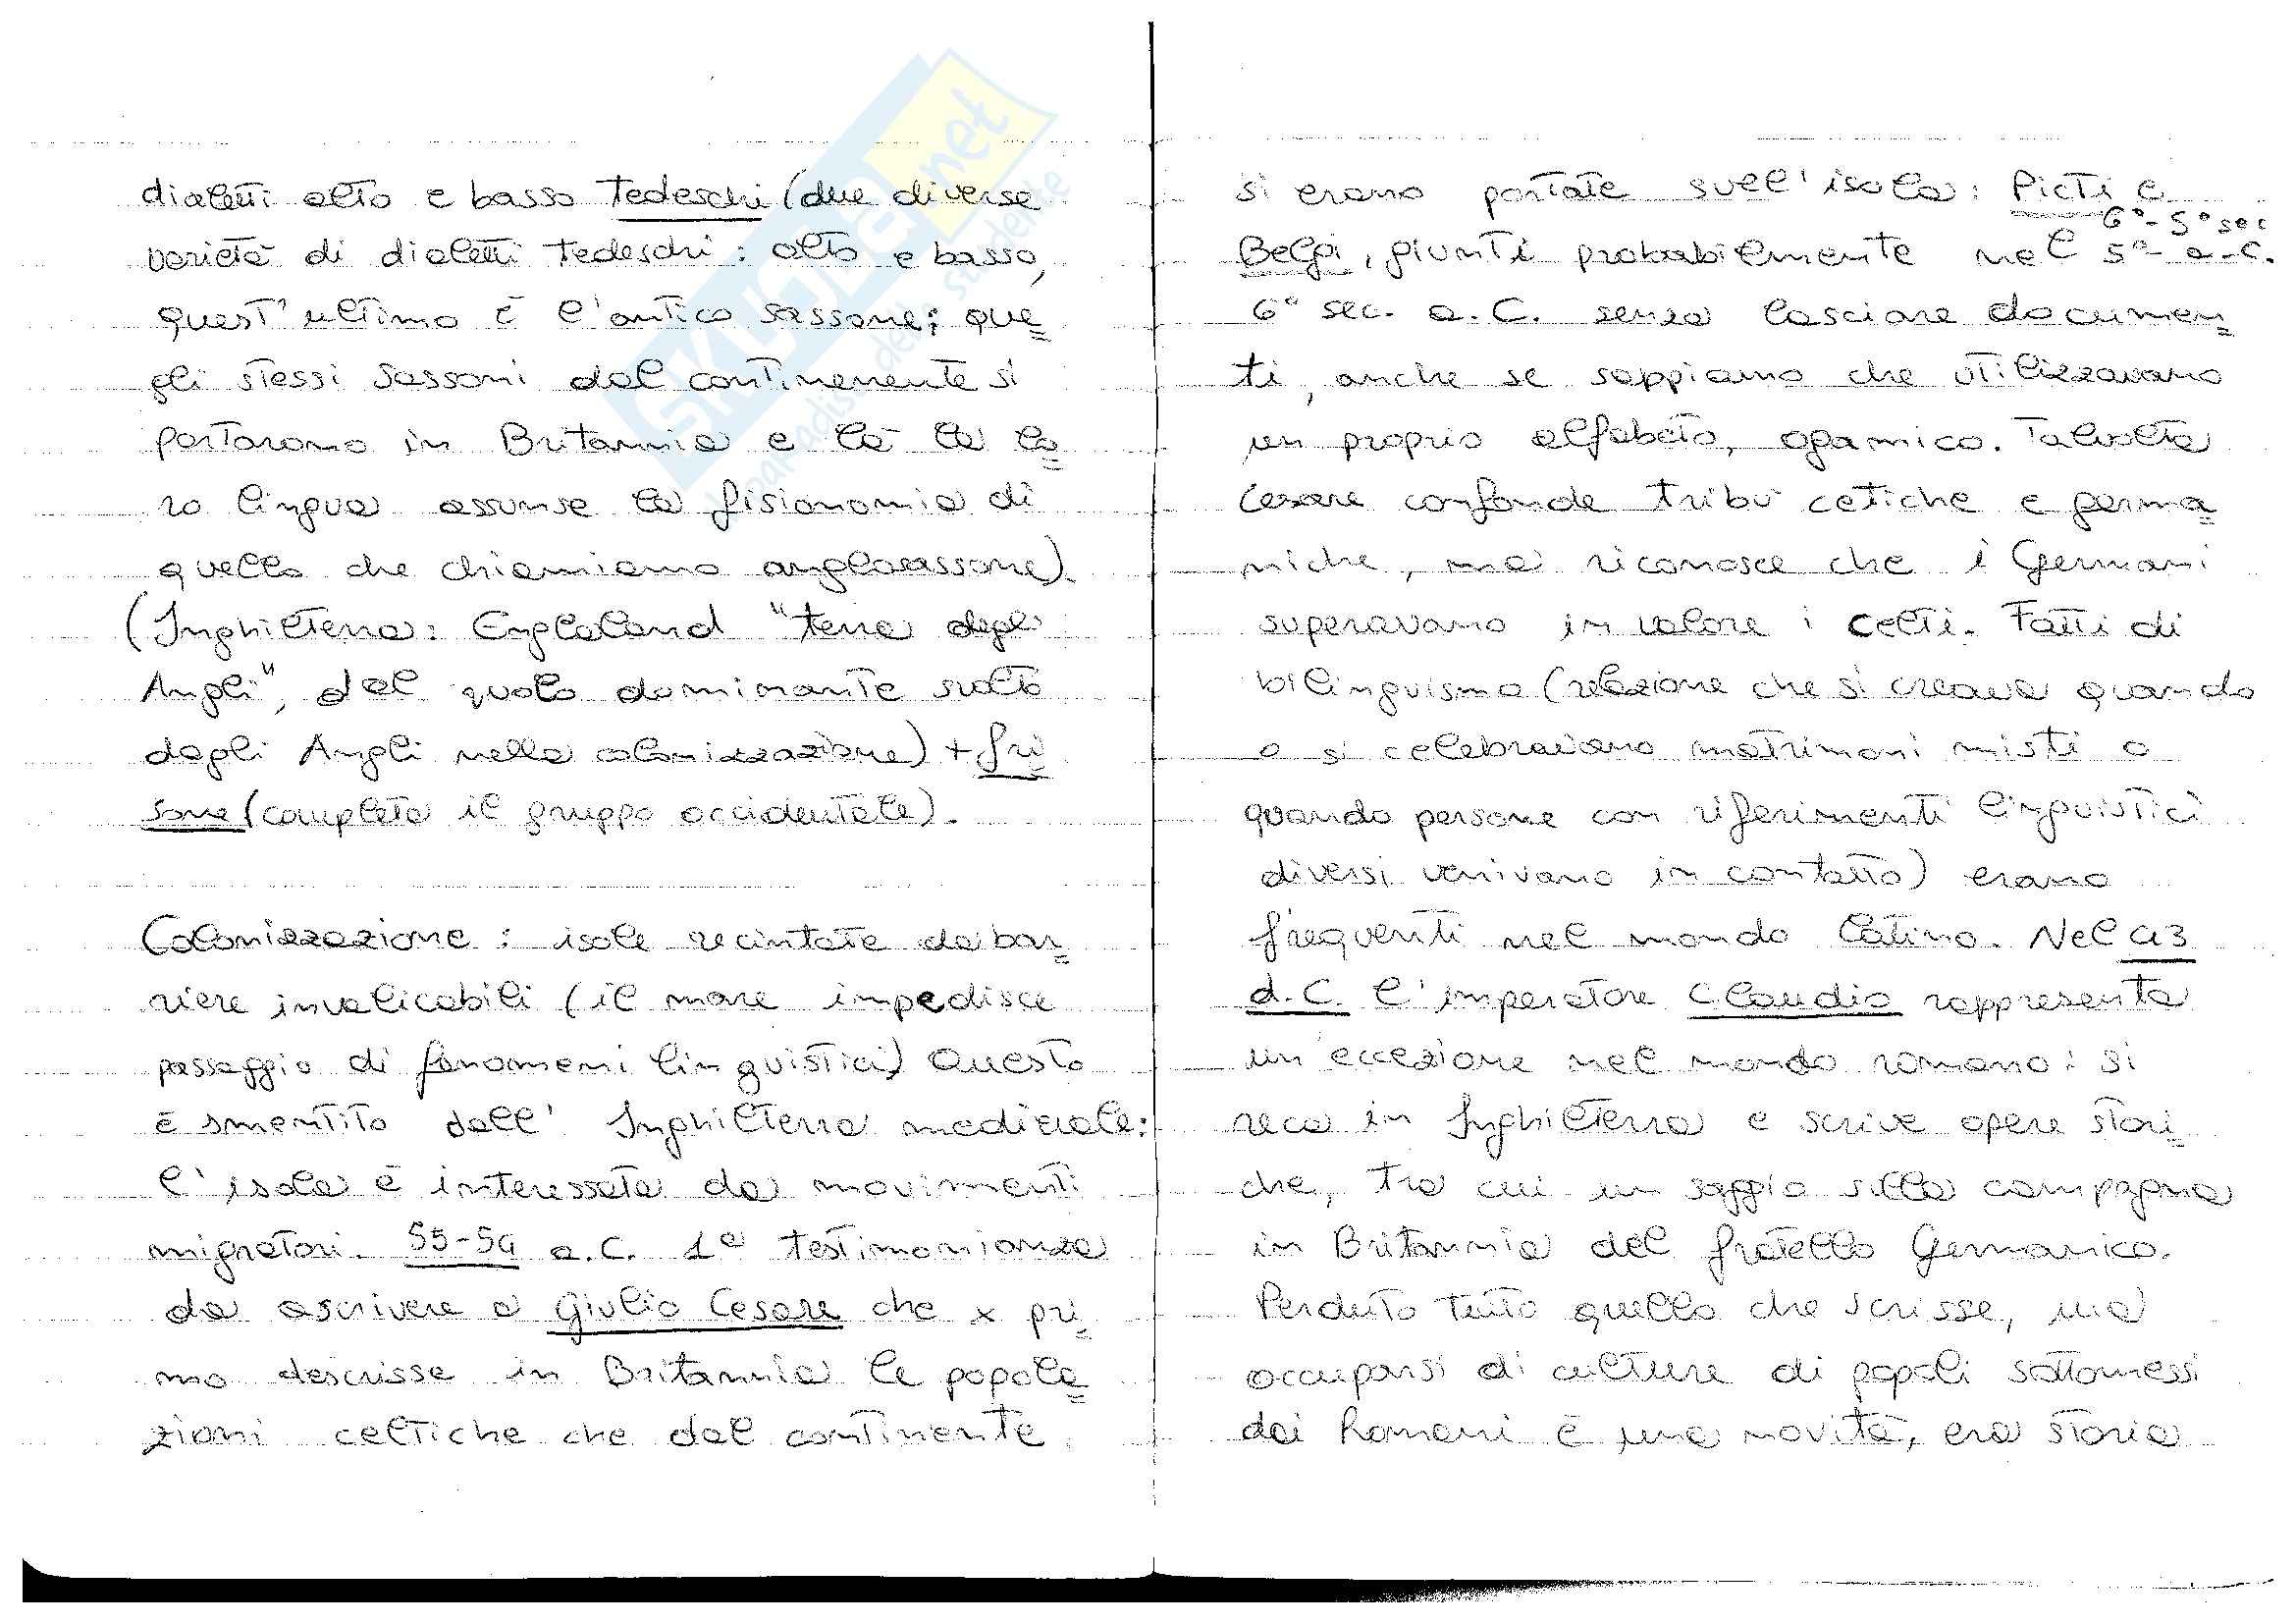 dialetti alto e basso tedeschi (due diverse
varietà di dialetti tedeschi: alto e basso,
quest'ultimo è l'antico sassone; que=
gli stessi sassoni dal continenente si
portarono in Britannia e là la lo=
ro lingua assunse la fisionomia di
quello che chiamiamo anglosassone).
(Inghilterra: Englaland "terra degli
Angli", dal ruolo dominante svolto
dagli Angli nella colonizzazione) + fri=
sone (completa il gruppo occidentale).
Colonizzazione: isole recintate da bar=
riere invalicabili (il mare impedisce
passaggio di fenomeni linguistici) Questo
è smentito dall' Inghilterra medievale:
l'isola è interessata da movimenti
migratori. 55-54 a.C. 1ª testimonianza
da ascrivere a Giulio Cesare che x pri=
mo descrisse in Britannia le popola=
zioni celtiche che dal continente
si erano portate sull'isola: Picti e
6°-5° sec
Belgi, giunti probabilmente nel 5° a.C.
6° sec. a.C. senza lasciare documen=
ti, anche se sappiamo che utilizzavano
un proprio alfabeto, ogamico. Talvolta
Cesare confonde tribù cetiche e germa=
niche, ma riconosce che i Germani
superavano in valore i Celti. Fatti di
bilinguismo (relazione che si creava quando
o si celebravano matrimoni misti o
quando persone con riferimenti linguistici
diversi venivano in contatto) erano
frequenti nel mondo latino. Nel 43
d.C. l'imperatore Claudio rappresenta
un'eccezione nel mondo romano: si
reca in Inghilterra e scrive opere stori=
che, tra cui un saggio sulla campagna
in Britannia del fratello Germanico.
Perduto tutto quello che scrisse, ma
occuparsi di culture di popoli sottomessi
dai Romani è una novità, era storia
SKUOLA.net
il paradiso dello studente